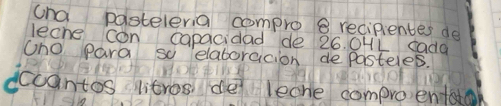 Una pasteleria compro 8 recipientes de
leche con capacidad de 26.04L cada
uno para su elaboracion de Pasteles.
¿cuantos litros de leche compro entotal